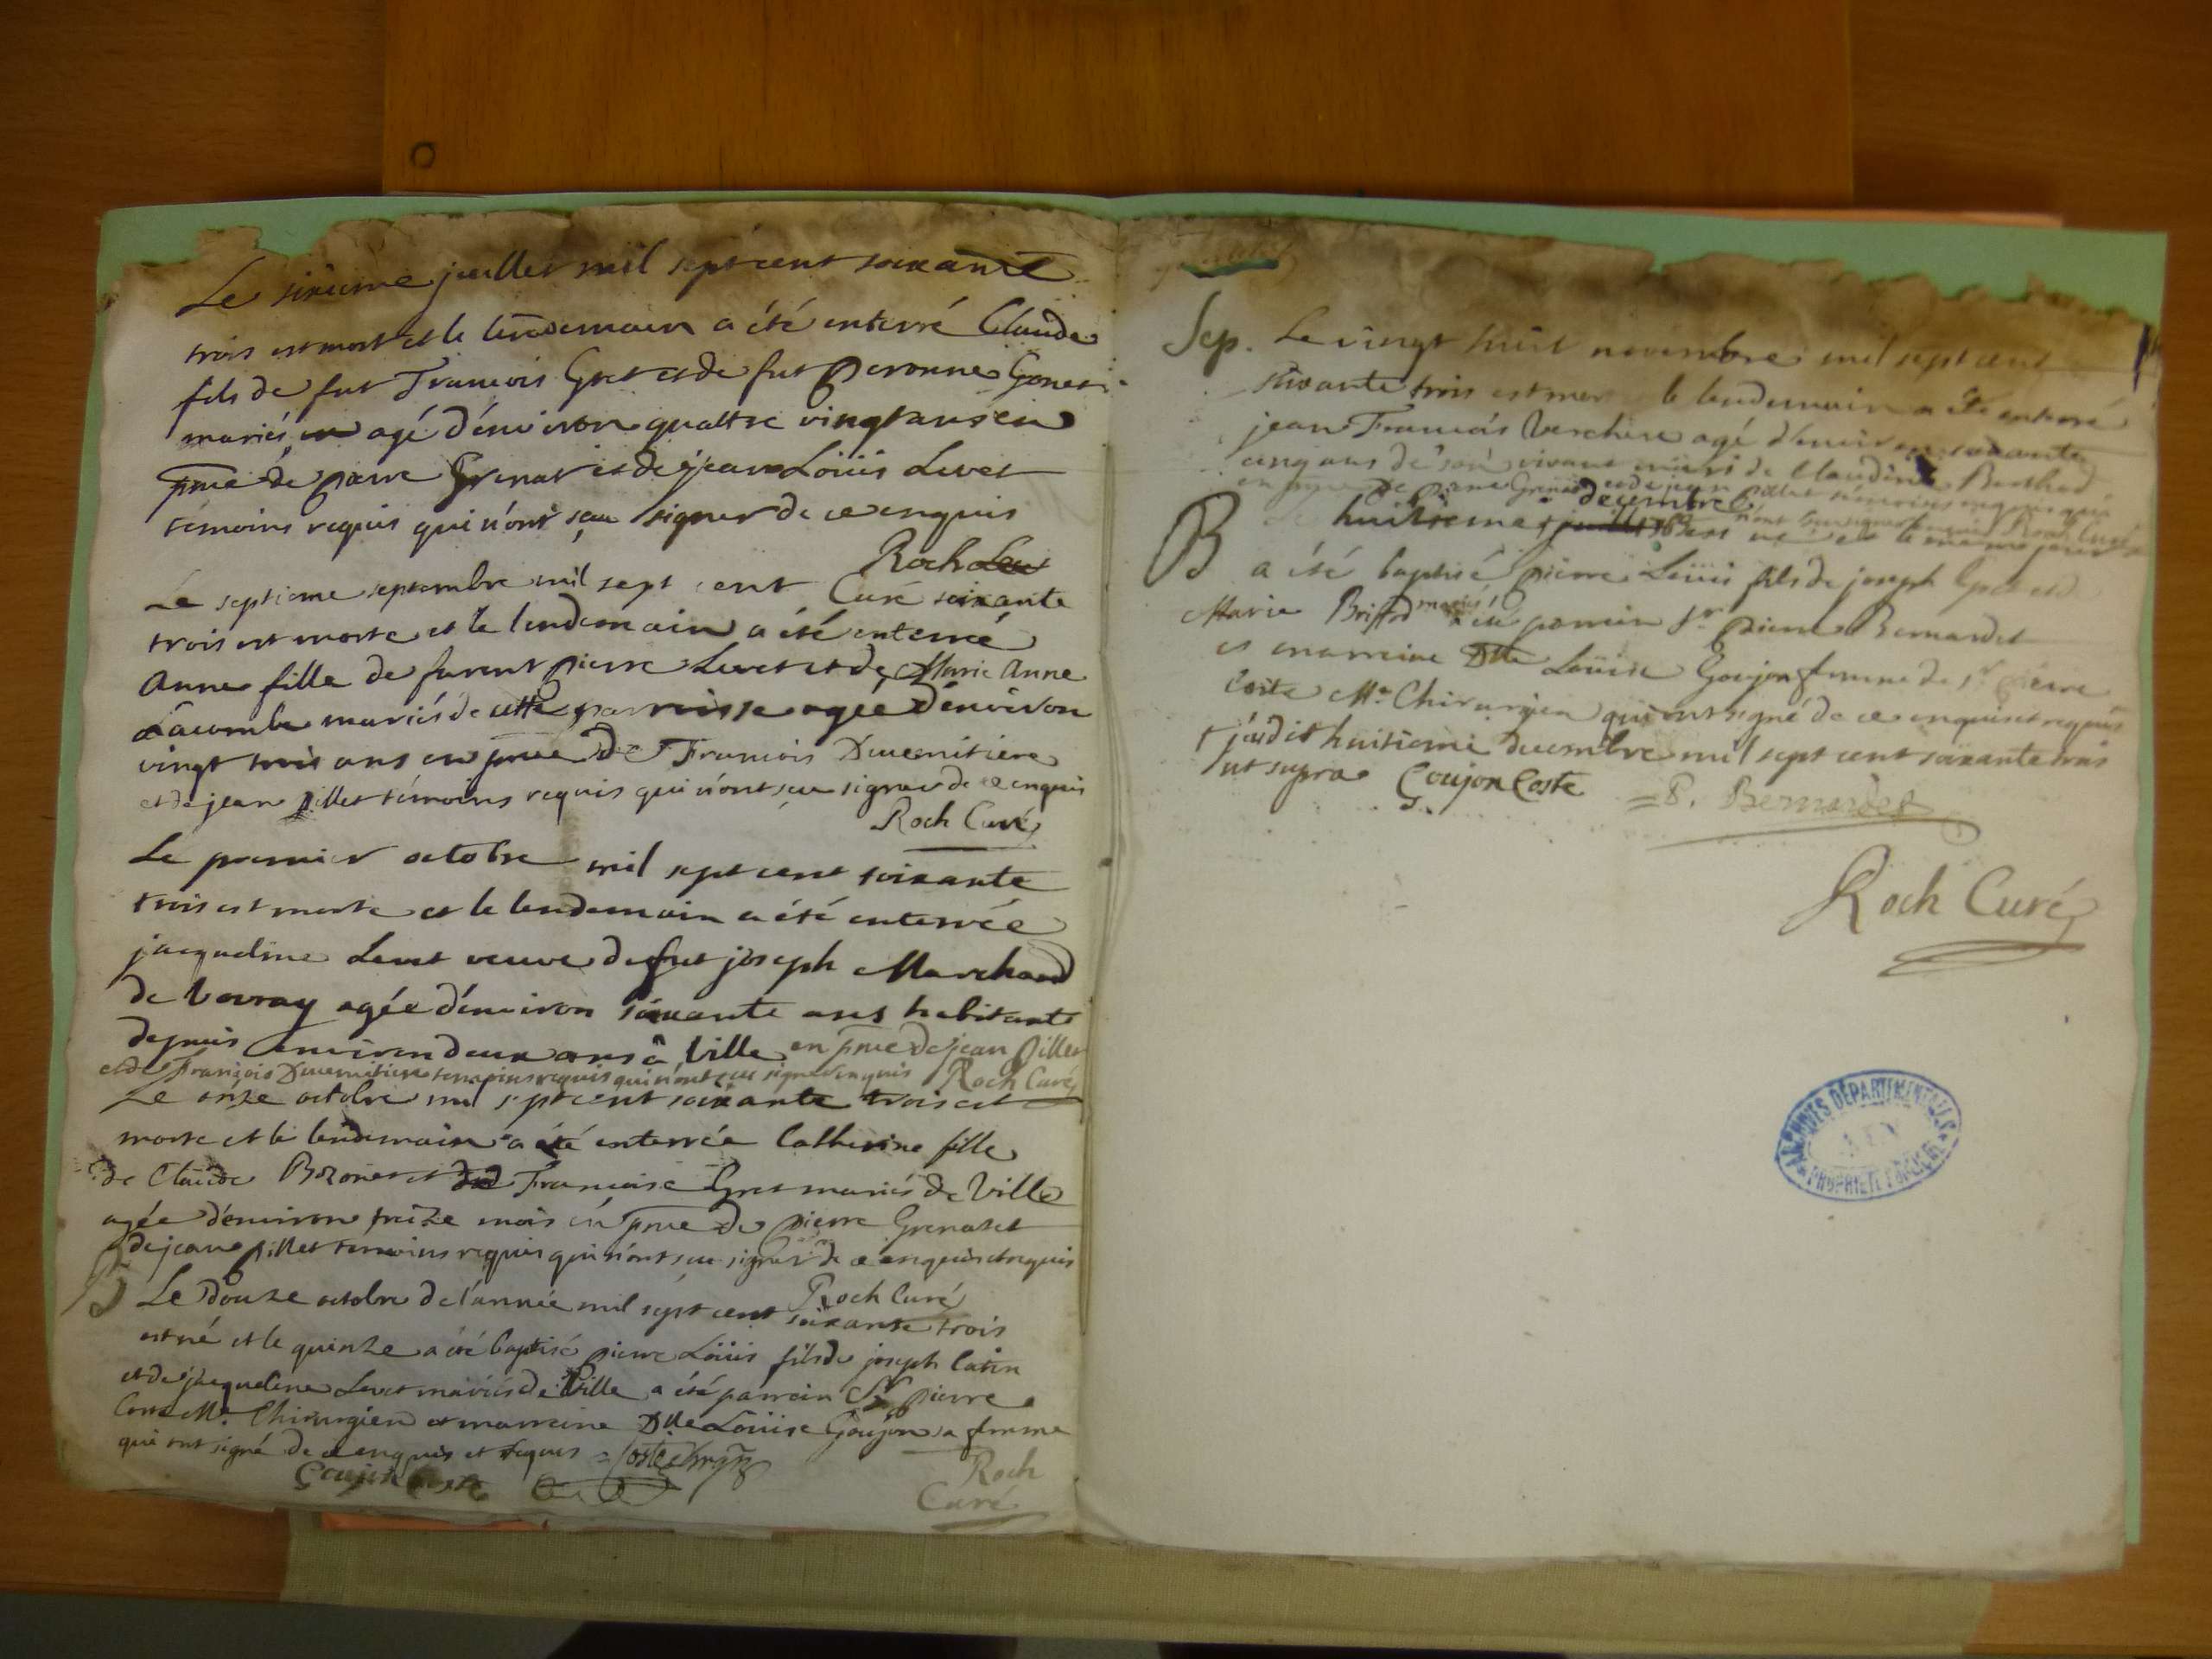 Le sixieme juillet mil sept cent soixante
trois est mort et le lendemain a été enterré Claude
fils de fut Francois Gret et de fut peronne
mariés agé d'environ quattre vingt ans en
pnce de pierre Grenat et de jean Loüis Levet
témoins requis qui n'ont sçu signer de ce enquis
Roch
Curé
Le septieme septembre mil sept cent soixante
trois est morte et le lendemain a été enterré
Anne fille de furent pierre Levet et de Marie Anne
Lacombe mariés de cette parroisse agée d'environ
vingt trois ans en pnce de Francois Dumenitiere
et de jean pillet témoins requis qui n'ont sçu signer de ce enquis
Roch Curé
Le premier octobre mil sept cent soixante
trois est morte et le lendemain a été enterrée
jacqueline Levet veuve de fut joseph Marchand
de Vovray agée d'environ soixante ans habitante
depuis environ deux ans à Ville en pnce de jean pillet
et de François Dumenitiere temoins requis qui n'ont sçu signer enquis Roch Curé
Le onze octobre mil sept cent soixante trois est
morte et le lendemain a été enterrée Catherine fille
de Claude Bozonet et de Francoise Gret mariés de Ville
agée d'environ treize mois en pnce de pierre Grenat et
de jean pillet temoins requis qui n'ont sçu signer de ce enquis et requis
Roch Curé
B Le douze octobre de l'année mil sept cent soixante trois
est né et le quinze a été baptisé pierre Loüis fils de joseph Catin
et de jacqueline Levet mariés de Ville a été parrein Sr pierre
Coste Me Chirurgien et marreine Dlle Loüise Goujon sa femme
qui ont signé de ce enquis et requis = Coste
Goujon Coste
Roch
Curé
Sep. Le vingt huit novembre mil sept cent
soixante trois est mort le lendemain a été enterré
jean Francois Verchere agé d'environ soixante
cinq ans de son vivant mari de Claudine Berthod
en pnce de pierre Grenat et de jean pillet témoins requis qui
n'ont sçu signer enquis Roch Curé
decembre
B huitieme est né et le meme jour
a été baptisé pierre Loüis fils de joseph Gret et de
Marie Briffod mariés a été parrein Sr pierre Bernardet
et marreine Dlle Loüise Goujon femme de Sr pierre
Coste Me Chirurgien qui ont signé de ce enquis et requis
+ jeudit huitieme decembre mil sept cent soixante trois
ut supra Goujon Coste = P. Bernardet
Roch Curé
ARCHIVES DEPARTEMENTALES
PROPRIETE PUBLIQUE